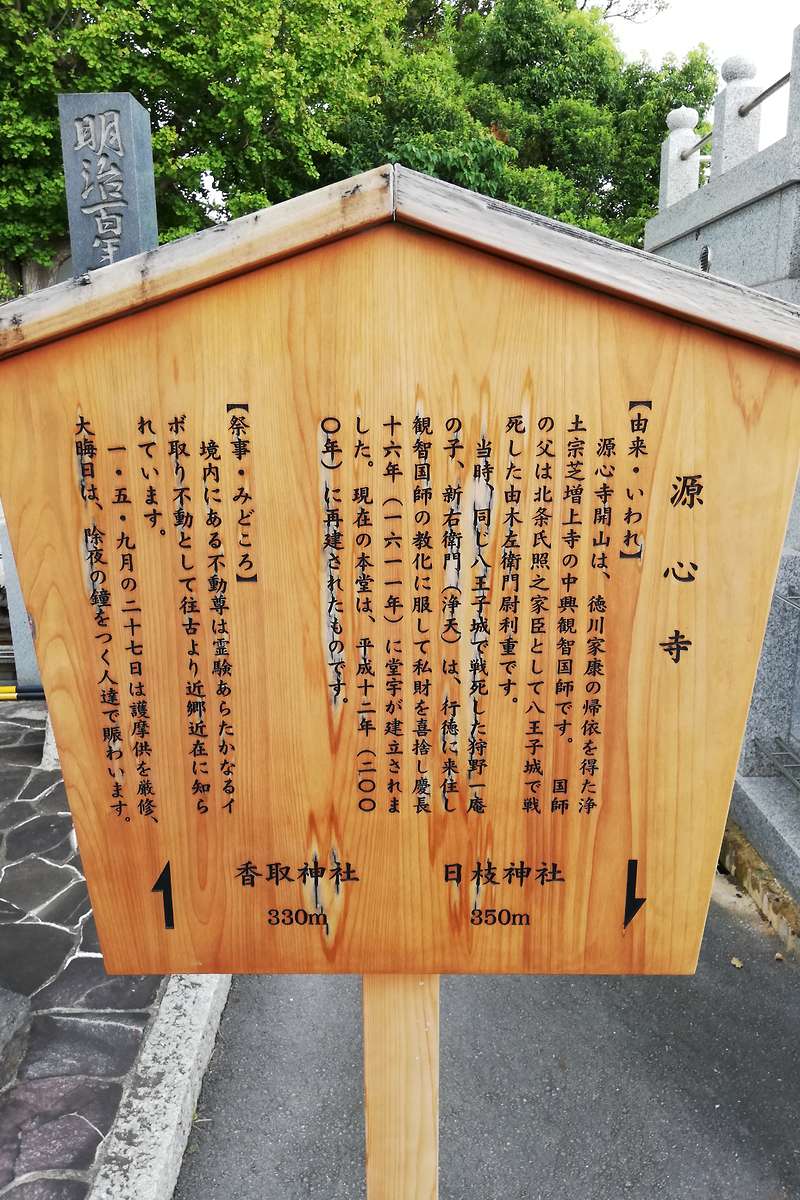 明治百年
源心寺
【由来・いわれ】
源心寺開山は、徳川家康の帰依を得た浄
土宗芝増上寺の中興観智国師です。　国師
の父は北条氏照之家臣として八王子城で戦
死した由木左衛門尉利重です。
当時、同じ八王子城で戦死した狩野一庵
の子、新右衛門（浄天）は、行徳に来住し
観智国師の教化に服して私財を喜捨し慶長
十六年（一六一一年）に堂宇が建立されま
した。現在の本堂は、平成十二年（二〇〇
〇年）に再建されたものです。
【祭事・みどころ】
境内にある不動尊は霊験あらたかなるイ
ボ取り不動として往古より近郷近在に知ら
れています。
一・五・九月の二十七日は護摩供を厳修、
大晦日は、除夜の鐘をつく人達で賑わいます。
日枝神社
350m
香取神社
330m